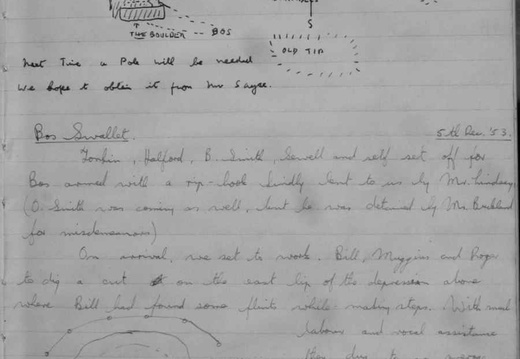 THE BOULDER
BOS
S
OLD TIP
Next Time a Pole will be needed
We hope to obtain it from Mr Sayce.
Bos Swallet. 5th Dec. '53.
Tonkin, Halford, B. Smith, Sewell and self set off for
Bos armed with a rip-hook kindly lent to us by Mrs. Lindsay
(O. Smith was coming as well, but he was detained by Mr. Buckland
for misdemeanors)
On arrival, we set to work. Bill, Muggins and Roger
to dig a cut on the east lip of the depression above
where Bill had found some flints while making steps. With much
labour and vocal assistance
they dug